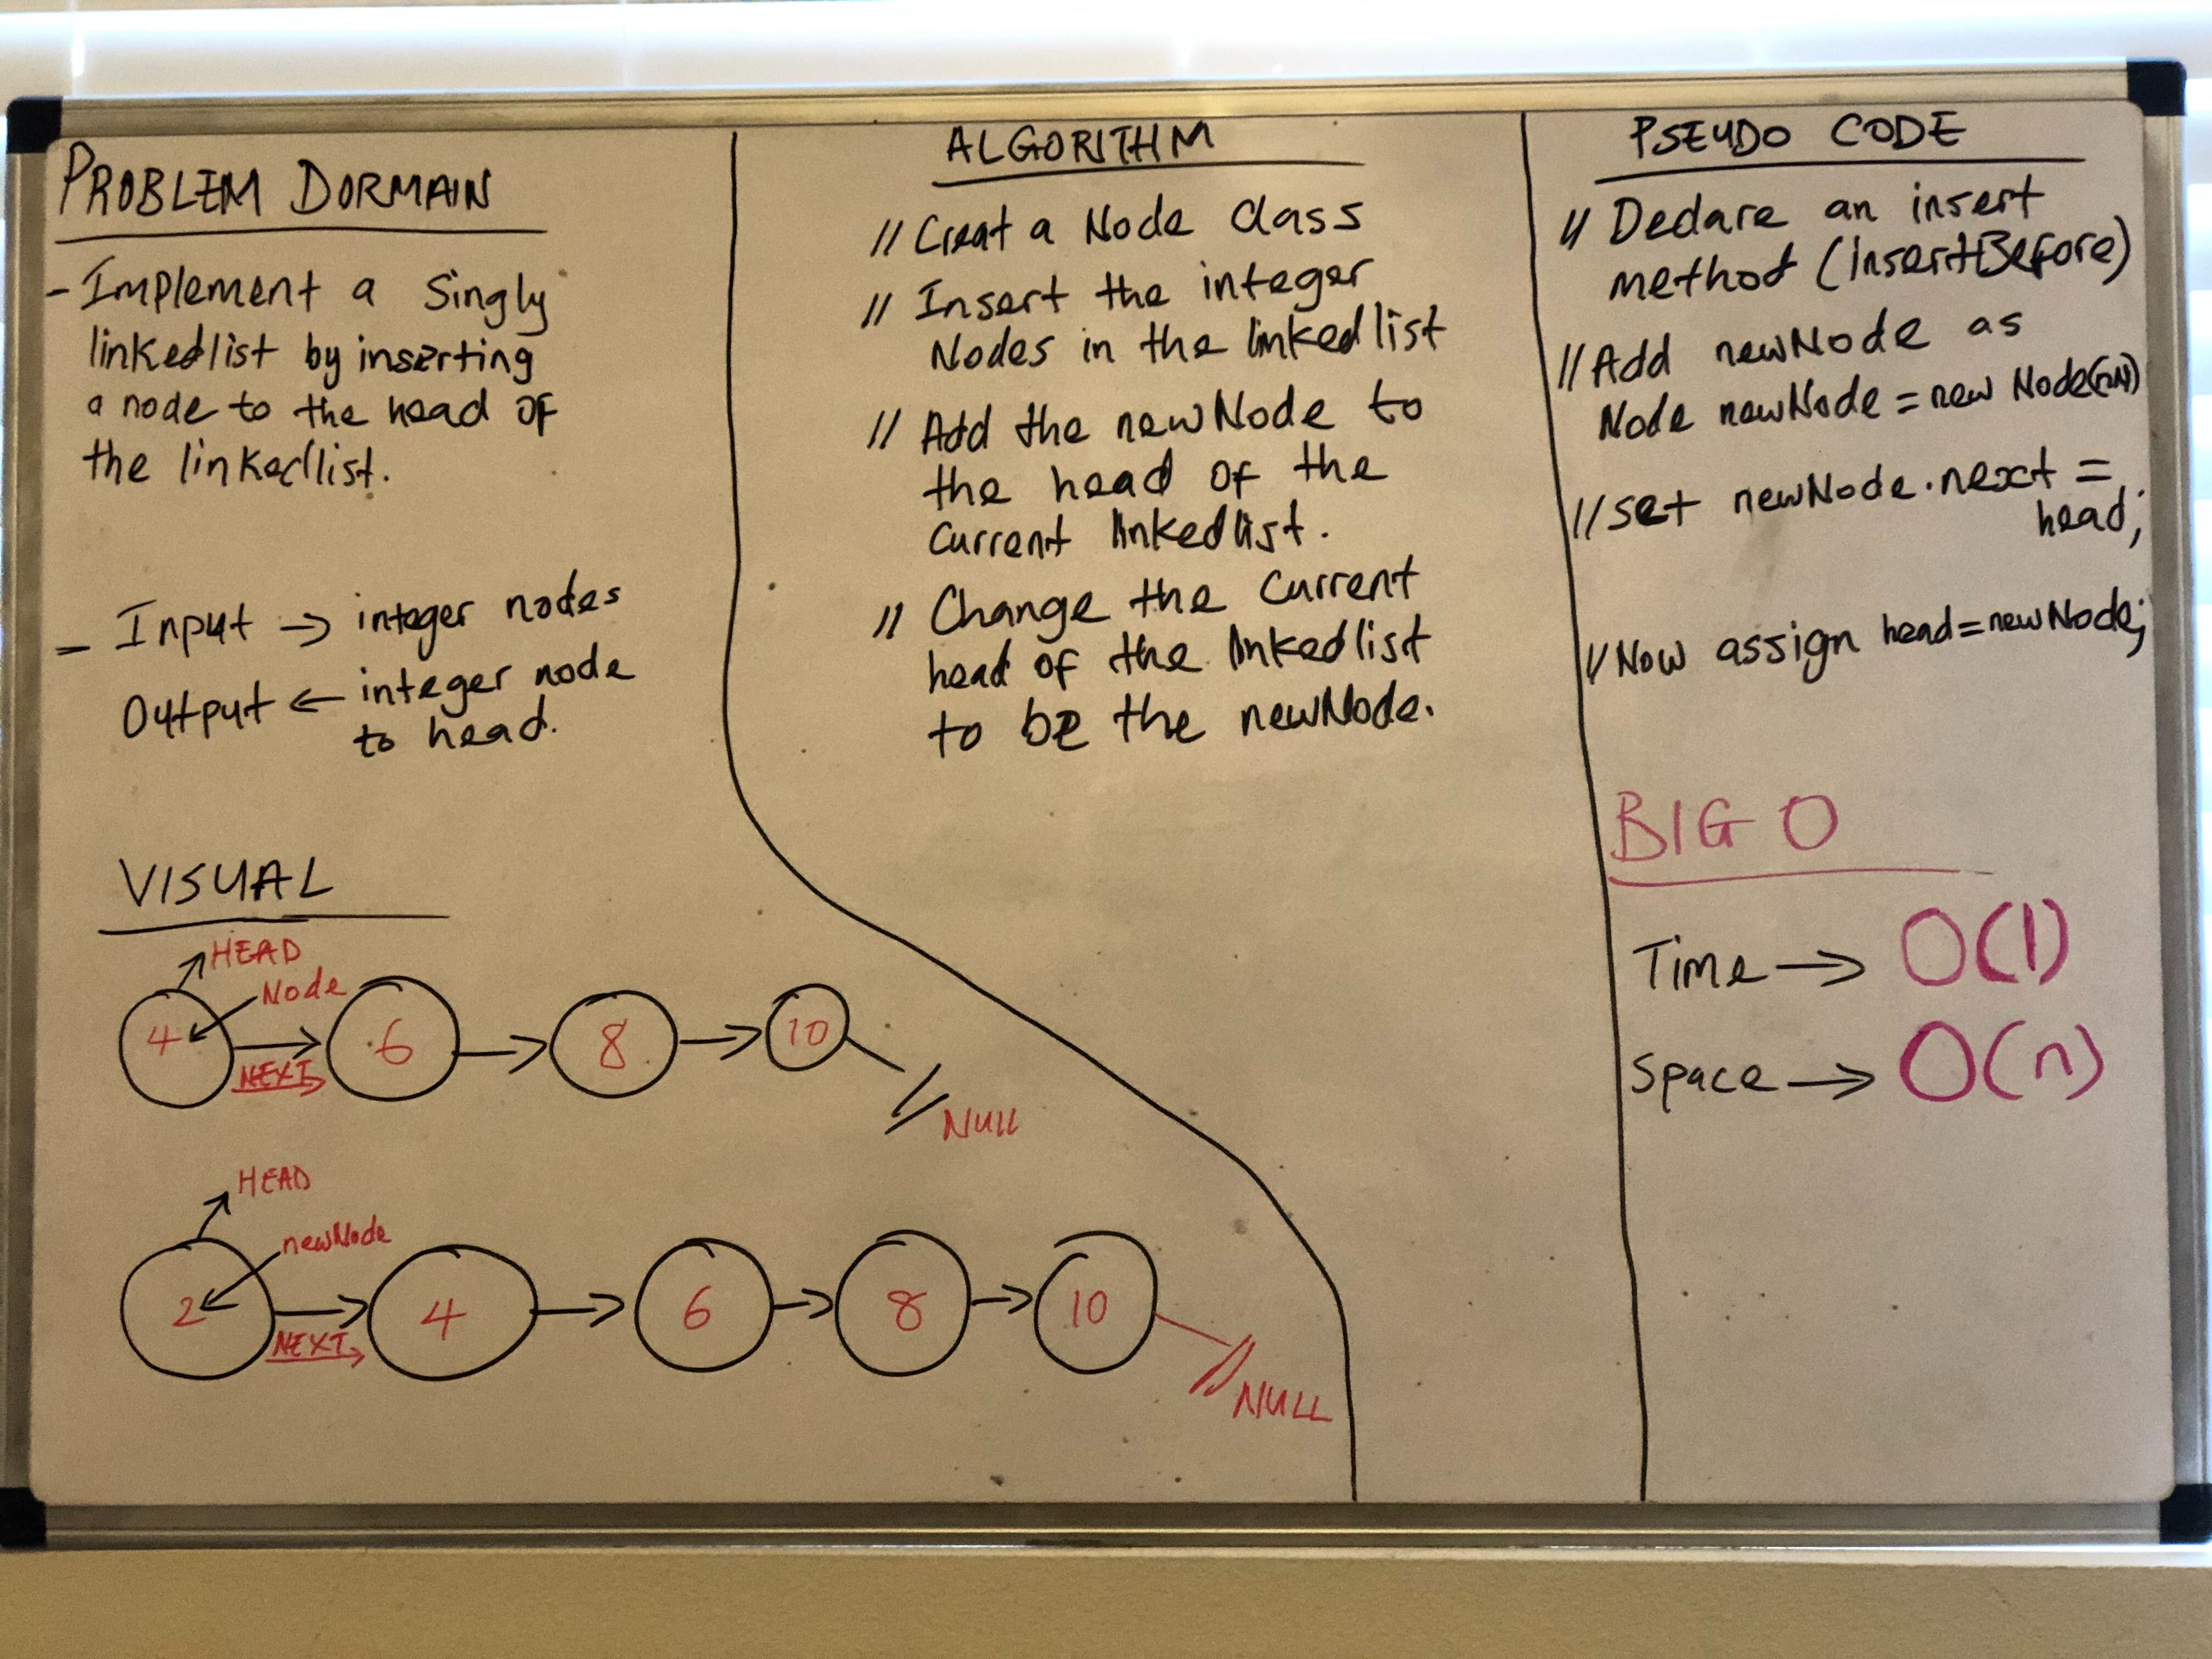 PROBLEM DORMAIN
- Implement a Singly
linkedlist by inserting
a node to the head of
the linkedlist.
- Input → integer nodes
Output ← integer node
to head.
VISUAL
HEAD
Node
4 6 8 10
NEXT
NULL
HEAD
newNode
2 4 6 8 10
NEXT
NULL
ALGORITHM
// Creat a Node Class
// Insert the integer
Nodes in the linkedlist
// Add the newNode to
the head of the
Current linkedlist.
// Change the Current
head of the linkedlist
to be the newNode.
PSEUDO CODE
// Declare an insert
method (insertBefore)
// Add newNode as
Node newNode = new Node(nN)
// set newNode.next =
head;
// Now assign head = newNode;
BIG O
Time → O(1)
Space → O(n)